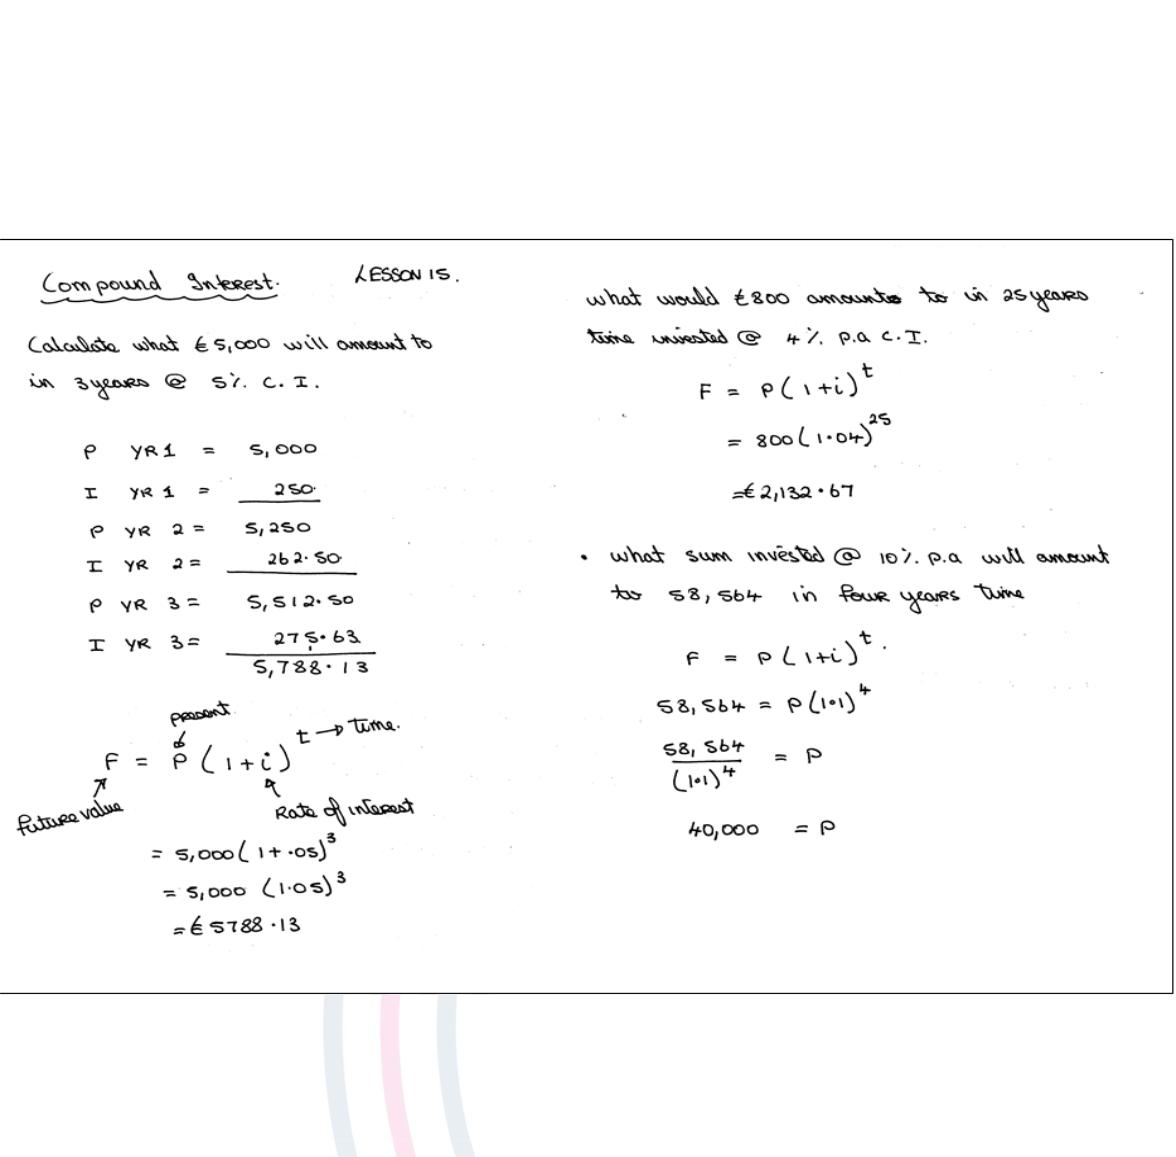 Compound Interest. LESSON 15.
Calculate what €5,000 will amount to
in 3 years @ 5% C. I.
P YR 1 = 5,000
I YR 1 = 250.
P YR 2 = 5,250
I YR 2 = 262.50
P YR 3 = 5,512.50
I YR 3 = 275.63
5,788.13
present
t → time.
F = P(1+i)
future value
Rate of interest
= 5,000(1+.05)³
= 5,000 (1.05)³
= € 5788.13
what would €800 amounts to in 25 years
time invested @ 4% p.a C.I.
F = P(1+i)ᵗ
= 800(1.04)²⁵
= € 2,132.67
• what sum invested @ 10% p.a will amount
to 58,564 in four years time
F = P(1+i)ᵗ.
58,564 = P(1.1)⁴
58,564
(1.1)⁴ = P
40,000 = P